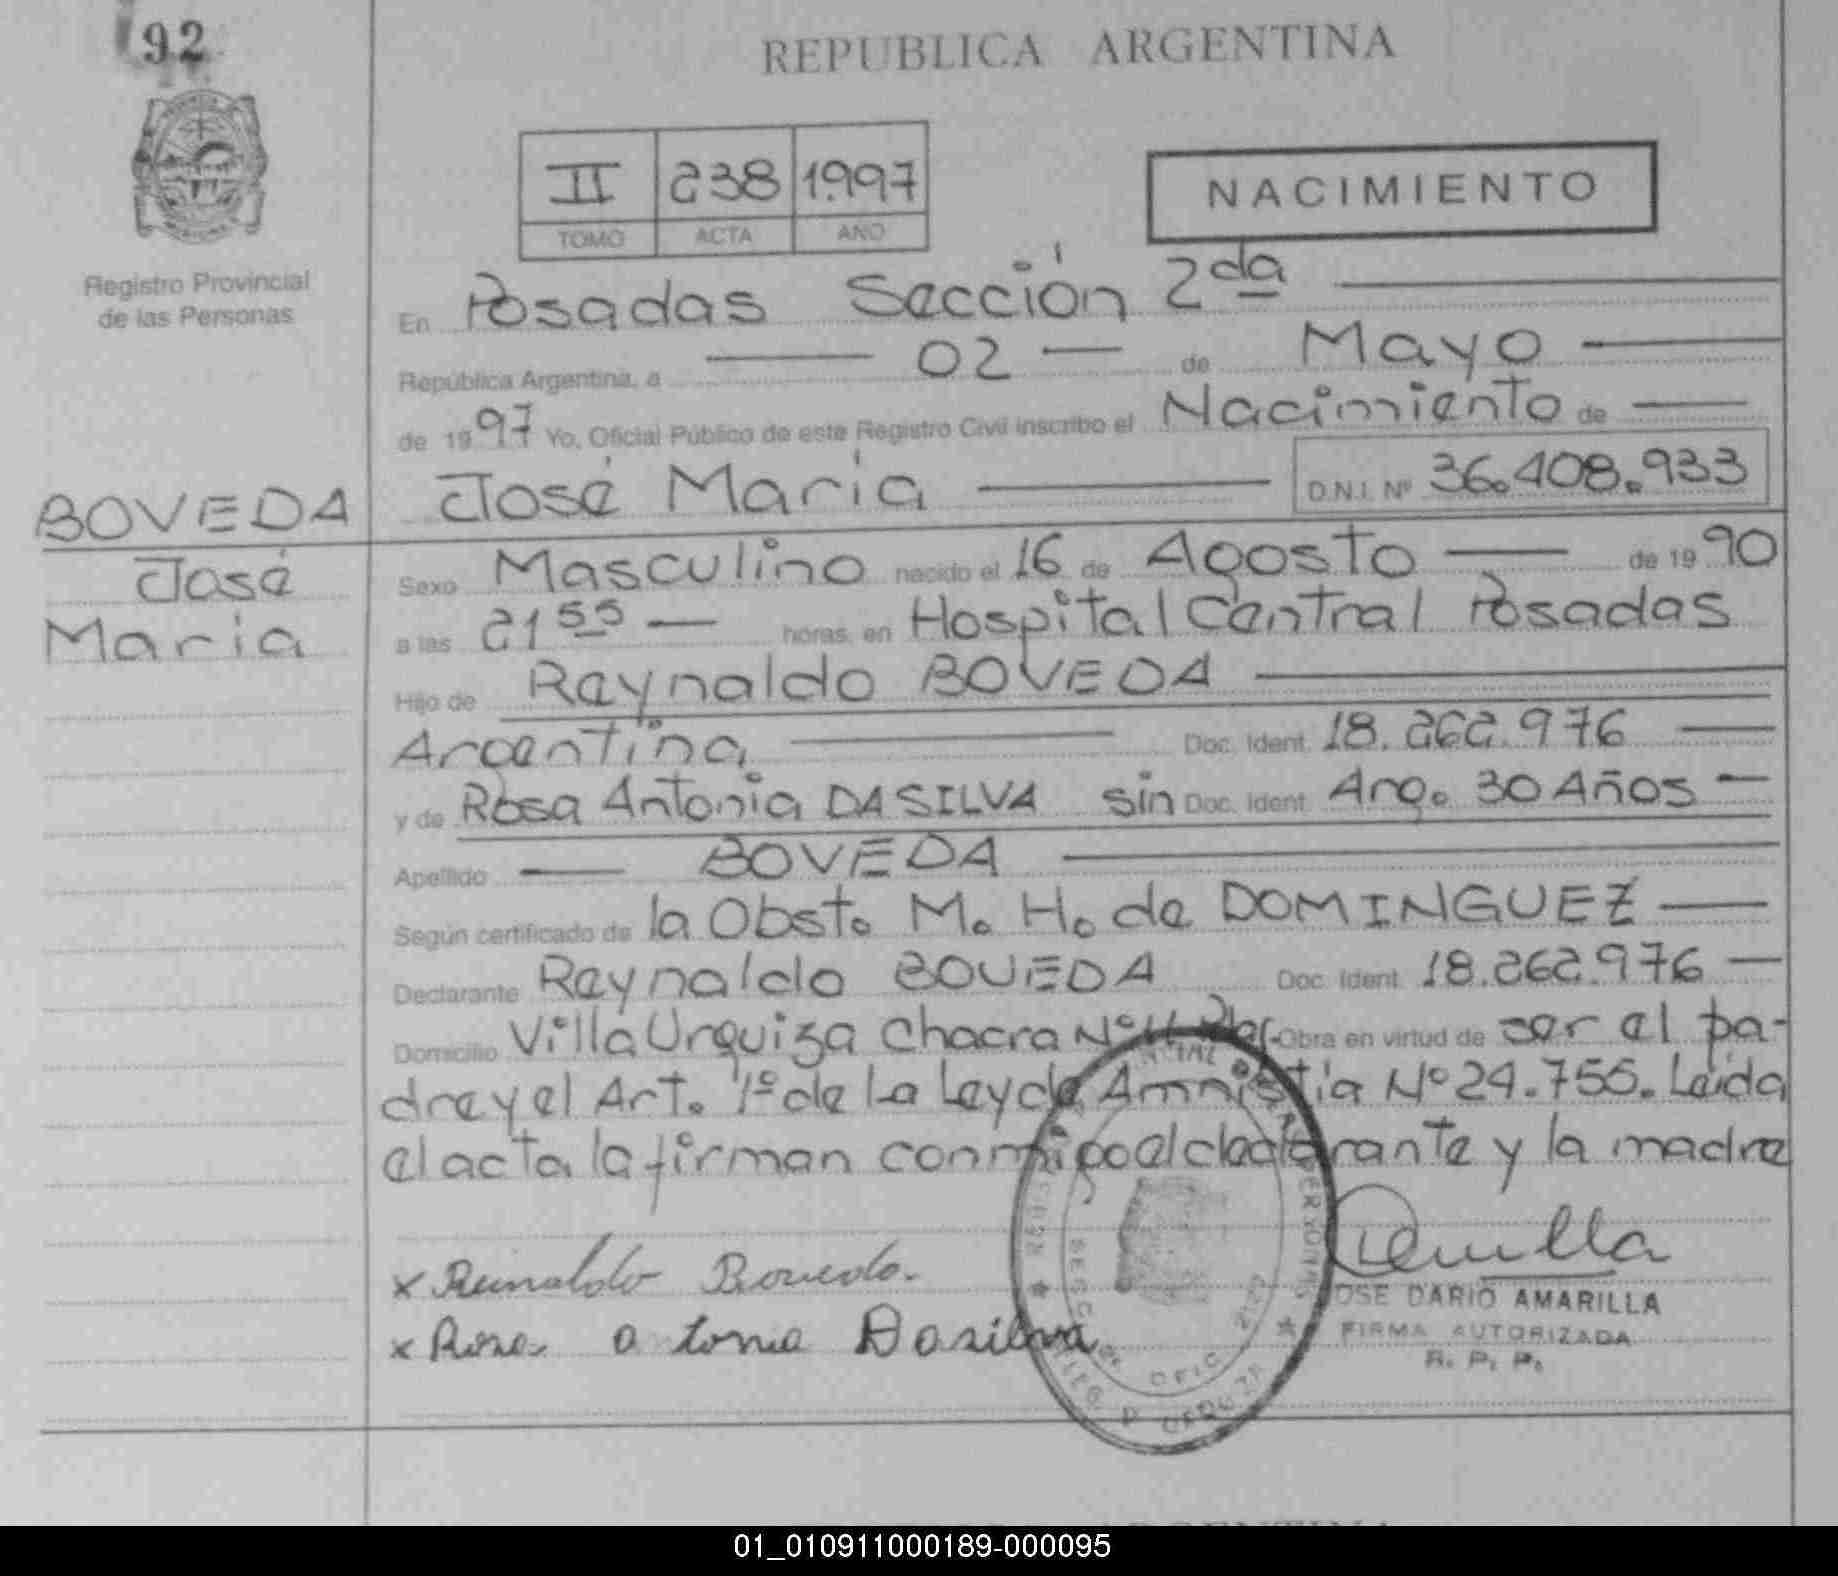 92
REPUBLICA ARGENTINA
II 238 1997
TOMO ACTA AÑO
NACIMIENTO
Registro Provincial
de las Personas
En Posadas Sección 2da
República Argentina, a 02 de Mayo
de 1997 Yo, Oficial Público de este Registro Civil inscribo el Nacimiento de
José María D.N.I. Nº 36.408.933
BOVEDA
José
María
Sexo Masculino nacido el 16 de Agosto de 1990
a las 21 55 horas, en Hospital Central Posadas
Hijo de Reynaldo BOVEDA
Argentina Doc. Ident. 18.262.976
y de Rosa Antonia DA SILVA sin Doc. Ident. Arg. 30 Años
Apellido BOVEDA
Según certificado de la Obst. M. H. de DOMINGUEZ
Declarante Reynaldo BOVEDA Doc. Ident. 18.262.976
Domicilio Villa Urquiza Chacra Nº Obra en virtud de ser el pa-
dre y el Art. 1º de La Ley de Amnistía Nº 24.755. Leída
el acta la firman conmigo el declarante y la madre
x Reinaldo Boveda.
x Rosa a tonia Dasilva
JOSE DARIO AMARILLA
FIRMA AUTORIZADA
R. P. P.
01_010911000189-000095